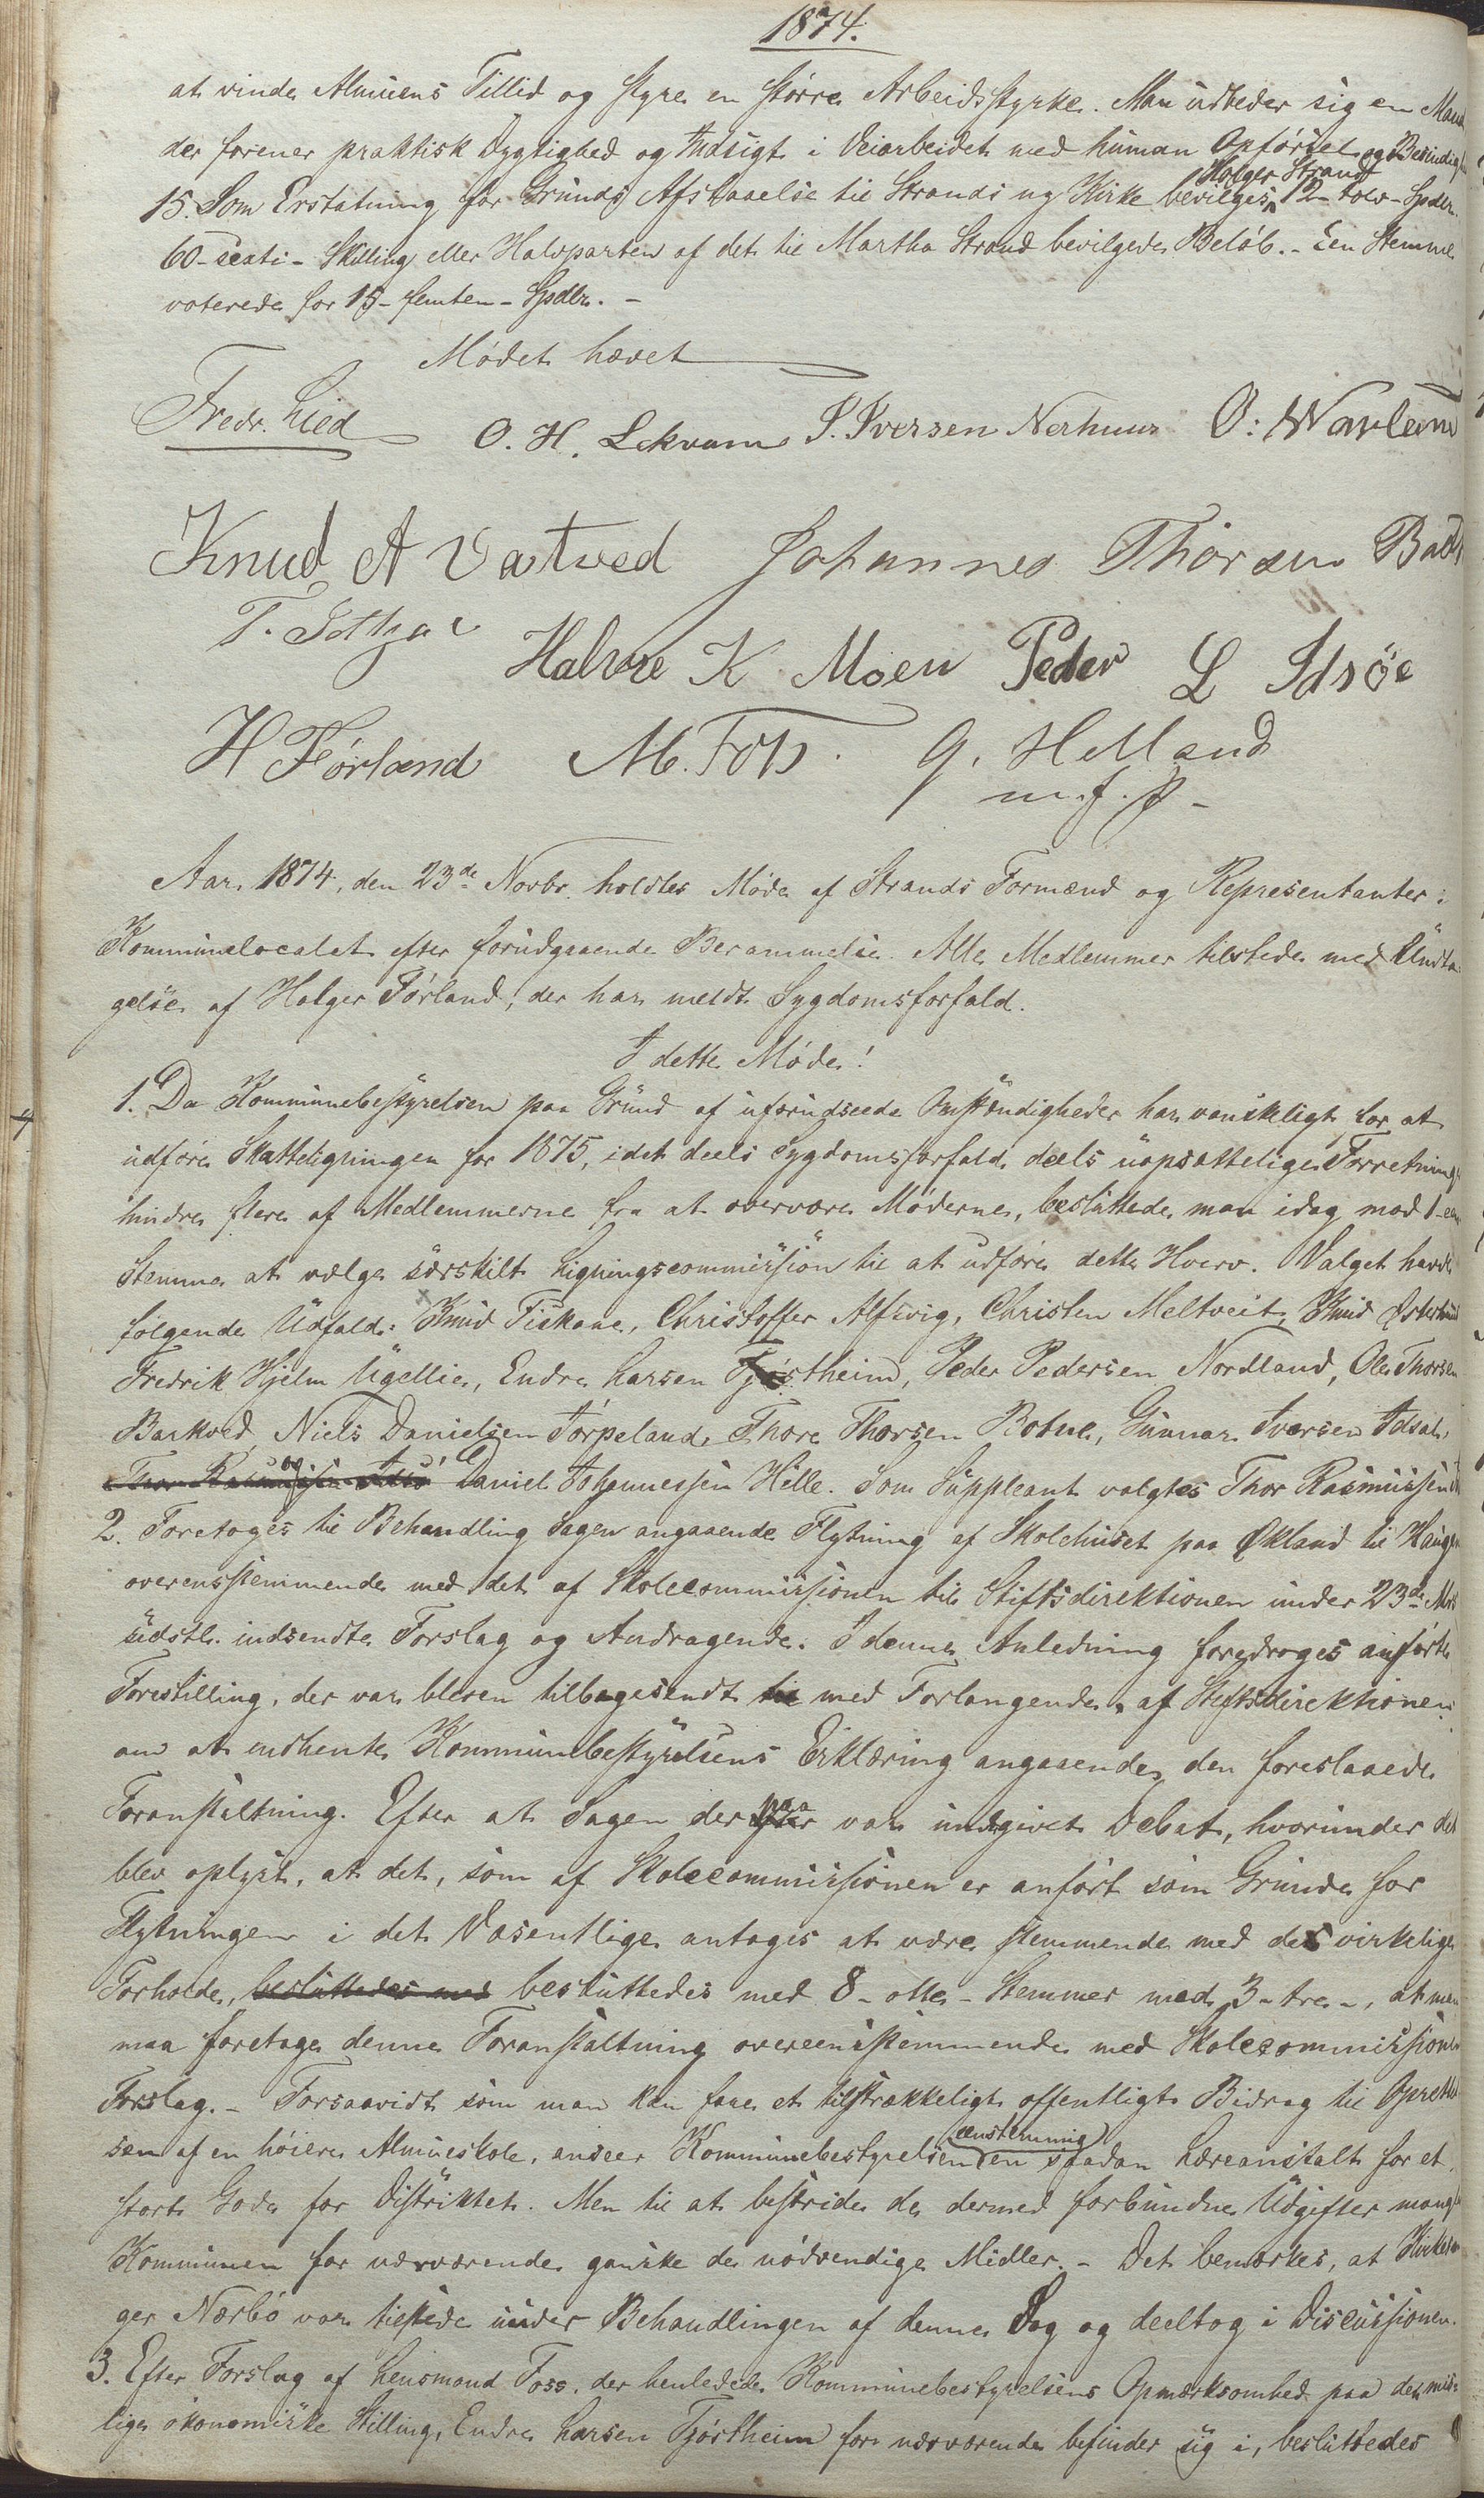 1874.
at vinde Almuens Tillid og styre en större Arbeidsstyrke. Man udbeder sig en Mand
der forener praktisk Dygtighed og Indsigt i Veiarbeidet med human Opförsel og Besindigh
15. Som Erstatning for Grunds Afstaaelse til Strands ny Kirke bevilges Holger Strand 12 – tolv – Spdlr.
60 – sexti – Skilling eller Halvparten af det til Martha Strand bevilgede Belöb. – Een Stemme
voterede for 15 – femten – Spdlr. –
Mödet hævet
Fredr. Lied O. H. Lekvam I. Iversen Nerhuus O: Warland
Knud A Vatved Johannes Thorsen
T. Halvor K Moen Peder L Idsöe
H Förland M. Foss. G. Helland
m.f.p –
Aar 1874, den 23de Novbr. holdtes Möde af Strands Formænd og Representanter i
Kommunelocalet efter forudgaaende Berammelse. Alle Medlemmer tilstede med Undta
gelse af Holger Förland, der har meldt Sygdomsforfald.
I dette Möde!
1. Da Kommunebestyrelsen paa Grund af uforudseede Omstændigheder har vanskeligt for at
udföre Skatteligningen for 1875, idet deels Sygdomsforfald, deels uopsættelige Forretning
hindre flere af Medlemmerne fra at overvære Möderne, besluttede man idag mod 1 – een
Stemme at vælge særskilt Ligningscommission til at udföre dette Hverv. Valget havde
fölgende Udfald: Knud Fiskaae, Christoffer Alsvig, Christen Meltveit, Knud Østerhus
Fredrik Hjelm Ugellie, Endre Larsen Tjöstheim, Peder Pedersen Nordland, Ole Thorsen
Barkved, Niels Danielsen Törpeland, Thore Thorsen Botne, Gunnar Iversen Idsal,
Thor Rasmussen Idsö og Daniel Johannessen Hille. Som Suppleant valgtes Thor Rasmussen
2. Foretoges til Behandling Sagen angaaende Flytning af Skolehuset paa Økland til Haugen
overensstemmende med det af Skolecommissionen til Stiftsdirektionen under 23de
sidstl. indsendte Forslag og Andragende. I denne Anledning foredroges anförte
Forestilling, der var bleven tilbagesendt til med Forlangende af Stiftsdirektionen
om at indhente Kommunebestyrelsens Erklæring angaaende den foreslaaede
Foranstaltning. Efter at Sagen derpaa var undergivet Debat, hvorunder det
blev oplyst, at det, som af Skolecommissionen er anfört som Grunde for
Flytningen i det Væsentlige antages at være stemmende med det virkelige
Forholde, besluttedes med besluttedes med 8 – otte – Stemmer mod 3 – tre –, at man
maa foretage denne Foranstaltning overeensstemmende med Skolecommissionens
Forslag. – Forsaavidt som man kan faae et tilstrækkeligt offentligt Bidrag til Oprettel
sen af en höiere Almueskole, anseer Kommunebestyrelsen eenstemmig en saadan Læreanstalt for et
stort Gode for Distriktet. Men til at bestride de dermed forbundne Udgifter mangler
Kommunen for nærværende ganske de nödvendige Midler. – Det bemærkes, at Kirkesan
ger Nærbö var tilstede under Behandlingen af denne Sag og deeltog i Discussionen.
3. Efter Forslag af Lensmand Foss, der henledede Kommunebestyrelsens Opmærksomhed paa den mis
lige ökonomiske Stilling, Endre Larsen Tjöstheim for nærværende befinder sig i, besluttedes